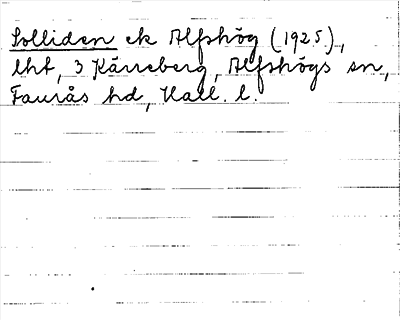 Solliden ek Alfshög (1925),
lht, 3 Kärreberg, Alfshögs sn,
Faurås hd, Hall. l.